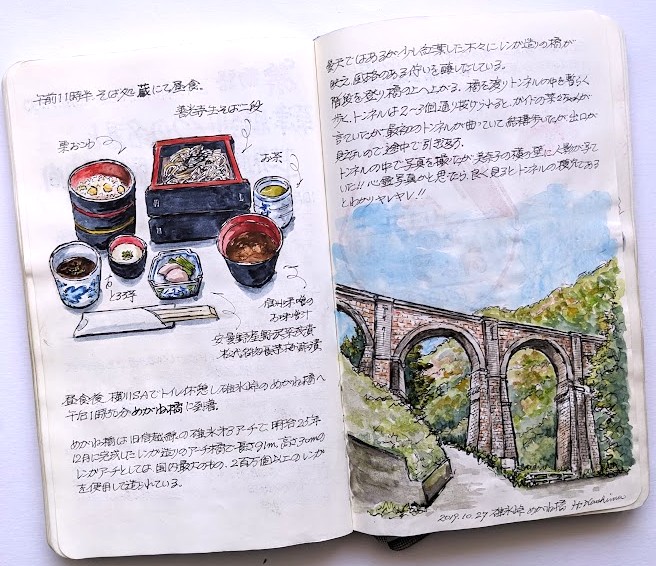 午前11時半、そば処 蔵にて昼食。
善光寺生そば二段
栗おこわ
お茶
とろろ
信州味噌の
お味噌汁
安曇野産野沢菜浅漬
昼食後、横川SAでトイレ休憩し碓氷峠のめがね橋へ
午后1時50分めがね橋に到着。
めがね橋は旧信越線の碓氷第3アーチで、明治25年
12月に完成したレンガ造りのアーチ橋で、長さ91m、高さ31mの
レンガアーチとしては国内最大のもの。2百万個以上のレンガ
を使用して造られている。
曇天ではあるが少し紅葉した木々にレンガ造りの橋が
映え風格のある佇いを醸しだしている。
階段を登り橋の上へ上がる。橋を渡りトンネルの中を暫らく
歩く。トンネルは2〜3個通り抜けられると、ガイドの
言ていたが最初のトンネルが曲っていて結構歩いたが出口が
見えないので途中で引き返す。
トンネルの中で写真を撮ったが、の横の壁に人影が写て
いた!!心霊写真かと思たら、良く見るとトンネルの横穴である
とわかりヤレヤレ!!
2019.10.27 碓氷峠 めがね橋